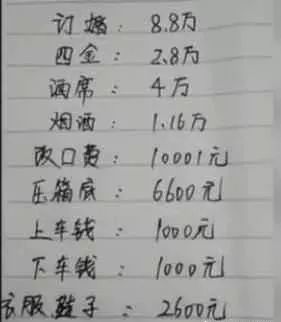 订婚：8.8万
四金：2.8万
酒席：4万
烟酒：1.16万
改口费：10001元
压箱底：6600元
上车钱：1000元
下车钱：1000元
衣服鞋子：2600元